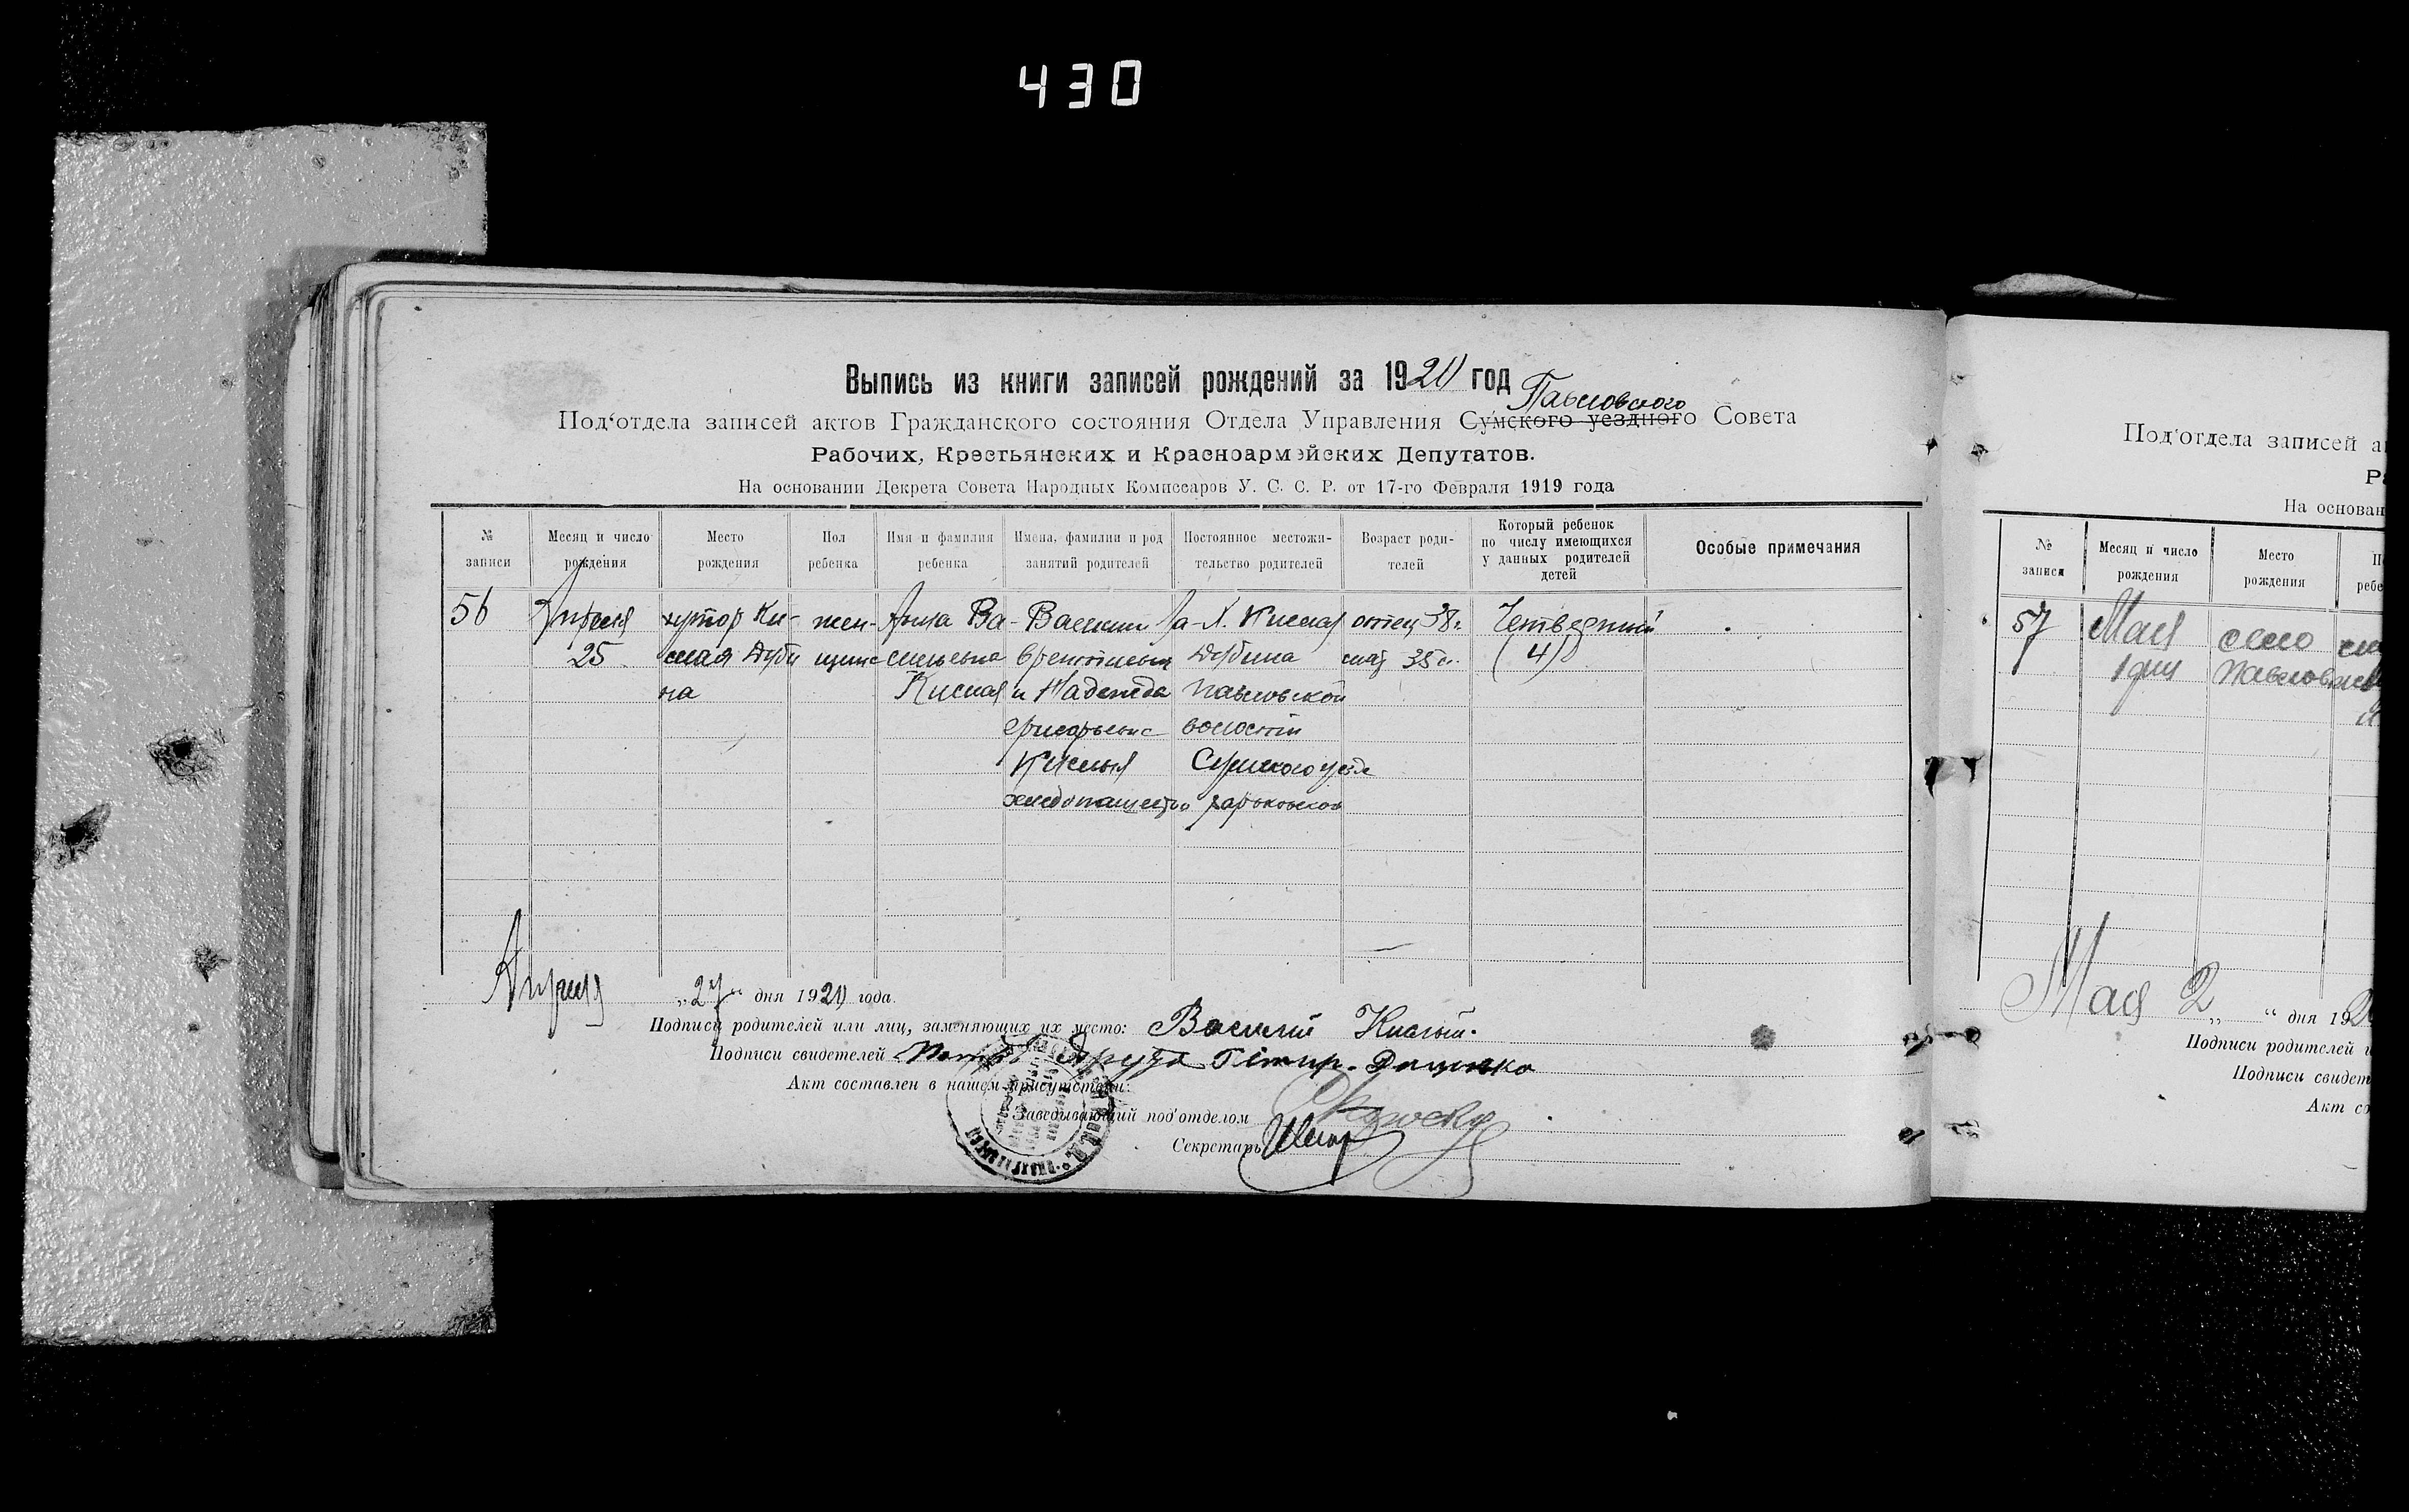 430
Выпись из книги записей рождений за 1920 год
Павловского
Под‘отдела записей актов Гражданского состояния Отдела Управления Сумского уездного Совета
Рабочих, Крестьянских и Красноармейских Депутатов.
На основании Декрета Совета Народных Комиссаров У. С. С. Р. от 17-го Февраля 1919 года
№ записи
Месяц и число рождения
Место рождения
Пол ребенка
Имя и фамилия ребенка
Имена, фамилии и род занятий родителей
Постоянное местожи-
тельство родителей
Возраст роди-
телей
Который ребенок
по числу имеющихся
у данных родителей
детей
Особые примечания
56
Апреля
25
хутор Ки-
слая Дуби
на
жен-
Анна Ва-
сильевна
Кислая
Василий
и Надежда
Кислыя
Х. Кислая
Дубина
Павловской
волости
Сумского
Харьковской
отец 38
35
Четвертый
(4)
Апреля „27“ дня 1920 года.
Подписи родителей или лиц, заменяющих их место: Василий Кислый.
Подписи свидетелей
Акт составлен в нашем присутствии:
Заведывающий под‘отделом
Секретарь
Под‘отдела записей а
Р
На основан
№ записи
Месяц и число рождения
Место рождения
57
Мая
1 дня
село
Мая 2 „ “ дня 192
Подписи родителей
Подписи свидет
Акт со